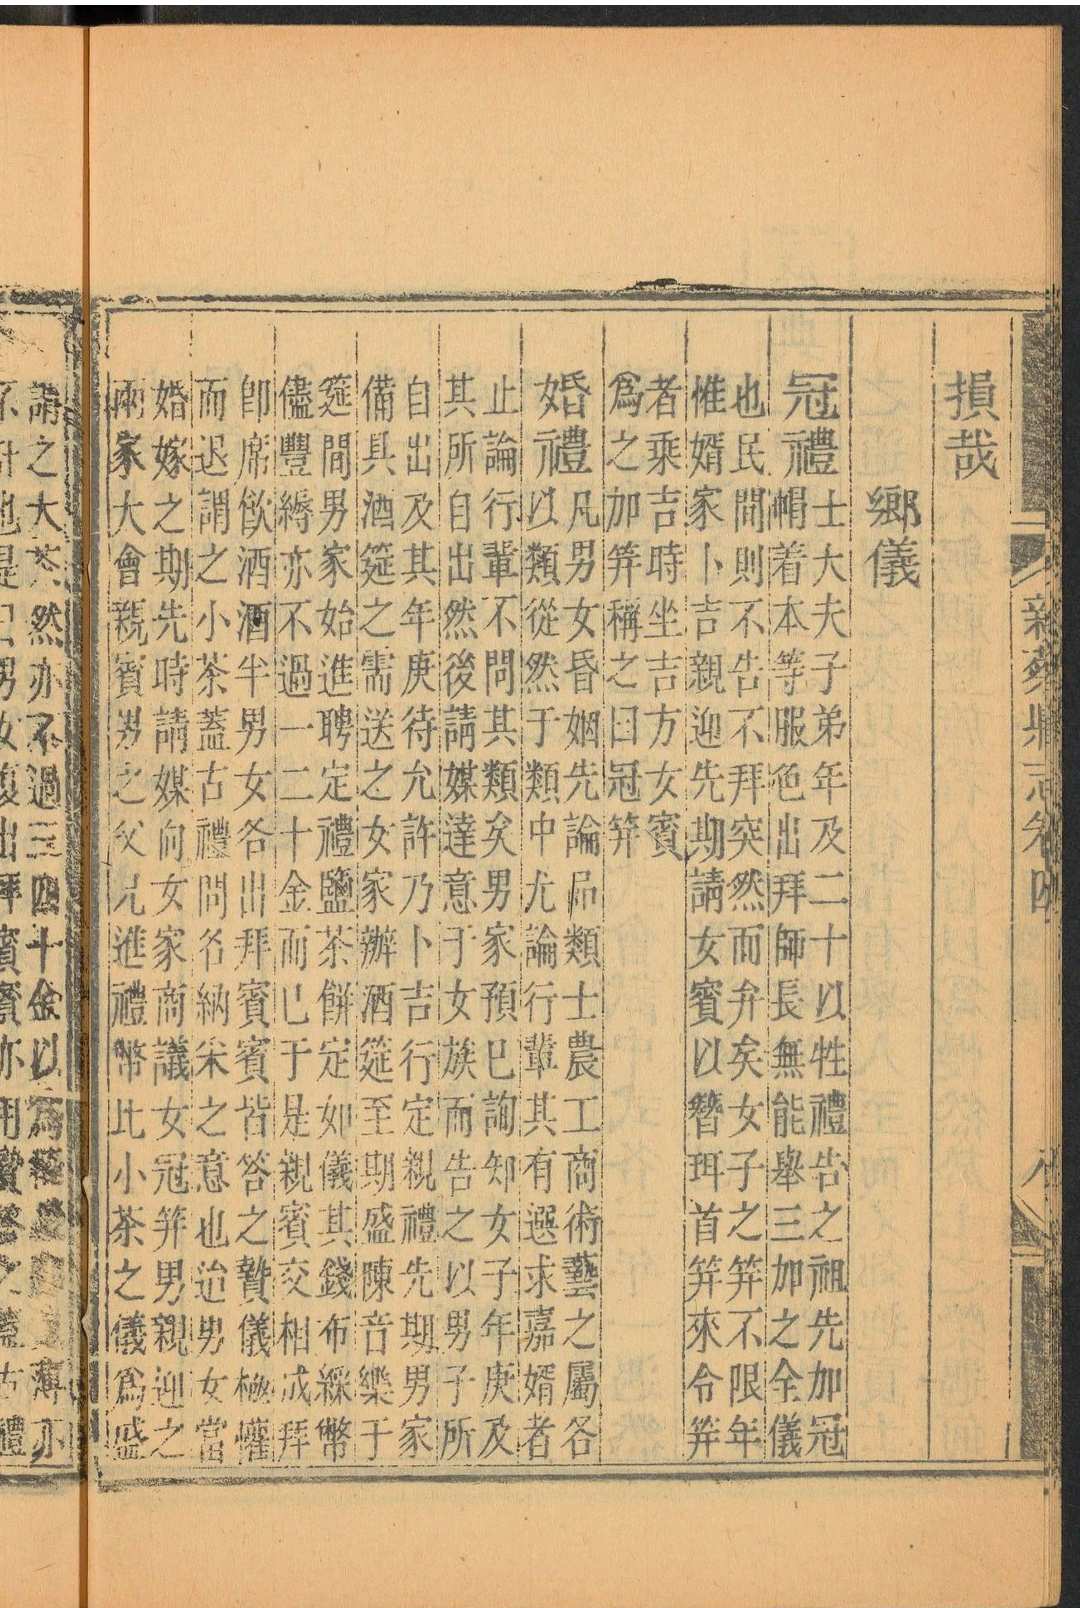 新蔡縣志卷四　八
損哉
鄉儀
冠禮士大夫子弟年及二十以牲禮告之祖先加冠
帽着本等服色出拜師長無能舉三加之全儀
也民間則不告不拜突然而弁矣女子之笄不限年
惟婿家卜吉親迎先期請女賓以簪珥首笄來令笄
者乘吉時坐吉方女賓
爲之加笄稱之曰冠笄
婚禮凡男女昏姻先論品類士農工商術藝之屬各
以類從然于類中尤論行輩其有選求嘉婿者
止論行輩不問其類矣男家預已詢知女子年庚及
其所自出然後請媒達意于女族而告之以男子所
自出及其年庚待允許乃卜吉行定親禮先期男家
備具酒筵之需送之女家辦酒筵至期盛陳音樂于
筵間男家始進聘定禮鹽茶餅定如儀其錢布綵幣
儘豐縟亦不過一二十金而已于是親賓交相成拜
卽席飲酒酒半男女各出拜賓賓皆答之贄儀極懽
而退謂之小茶蓋古禮問名納采之意也迨男女當
婚嫁之期先時請媒向女家商議女冠笄男親迎之
兩家大會親賓男之父兄進禮幣比小茶之儀爲盛
謂之大茶然亦不過三四十金以爲薄亦
不計也是日男女復出拜賓賓亦用贄答之蓋古禮